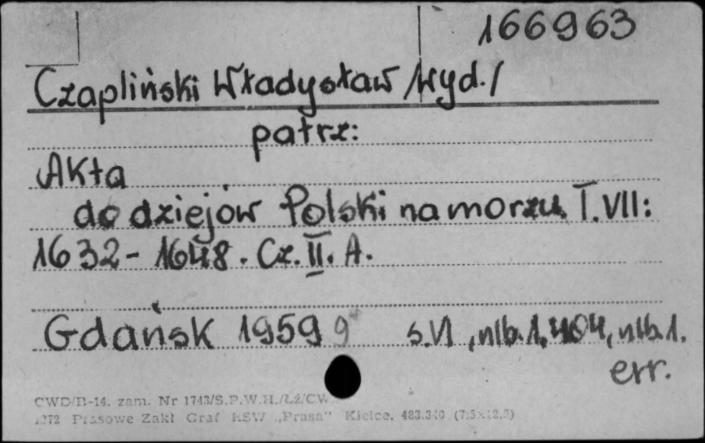 166963
Czapliński Władysław /wyd./
patrz:
Akta
do dziejów Polski na morzu, T. VII:
1632-1648. Cz. II. A.
Gdańsk 1959 9° s. VI, nlb. 1, 404, nlb. 1.
err.
CWD/B-14. zam. Nr 1743/S.P.W.H./Łź/CW
Prasowe Zakł Graf RSW „Prasa” Kielce. (7,5×12,5)